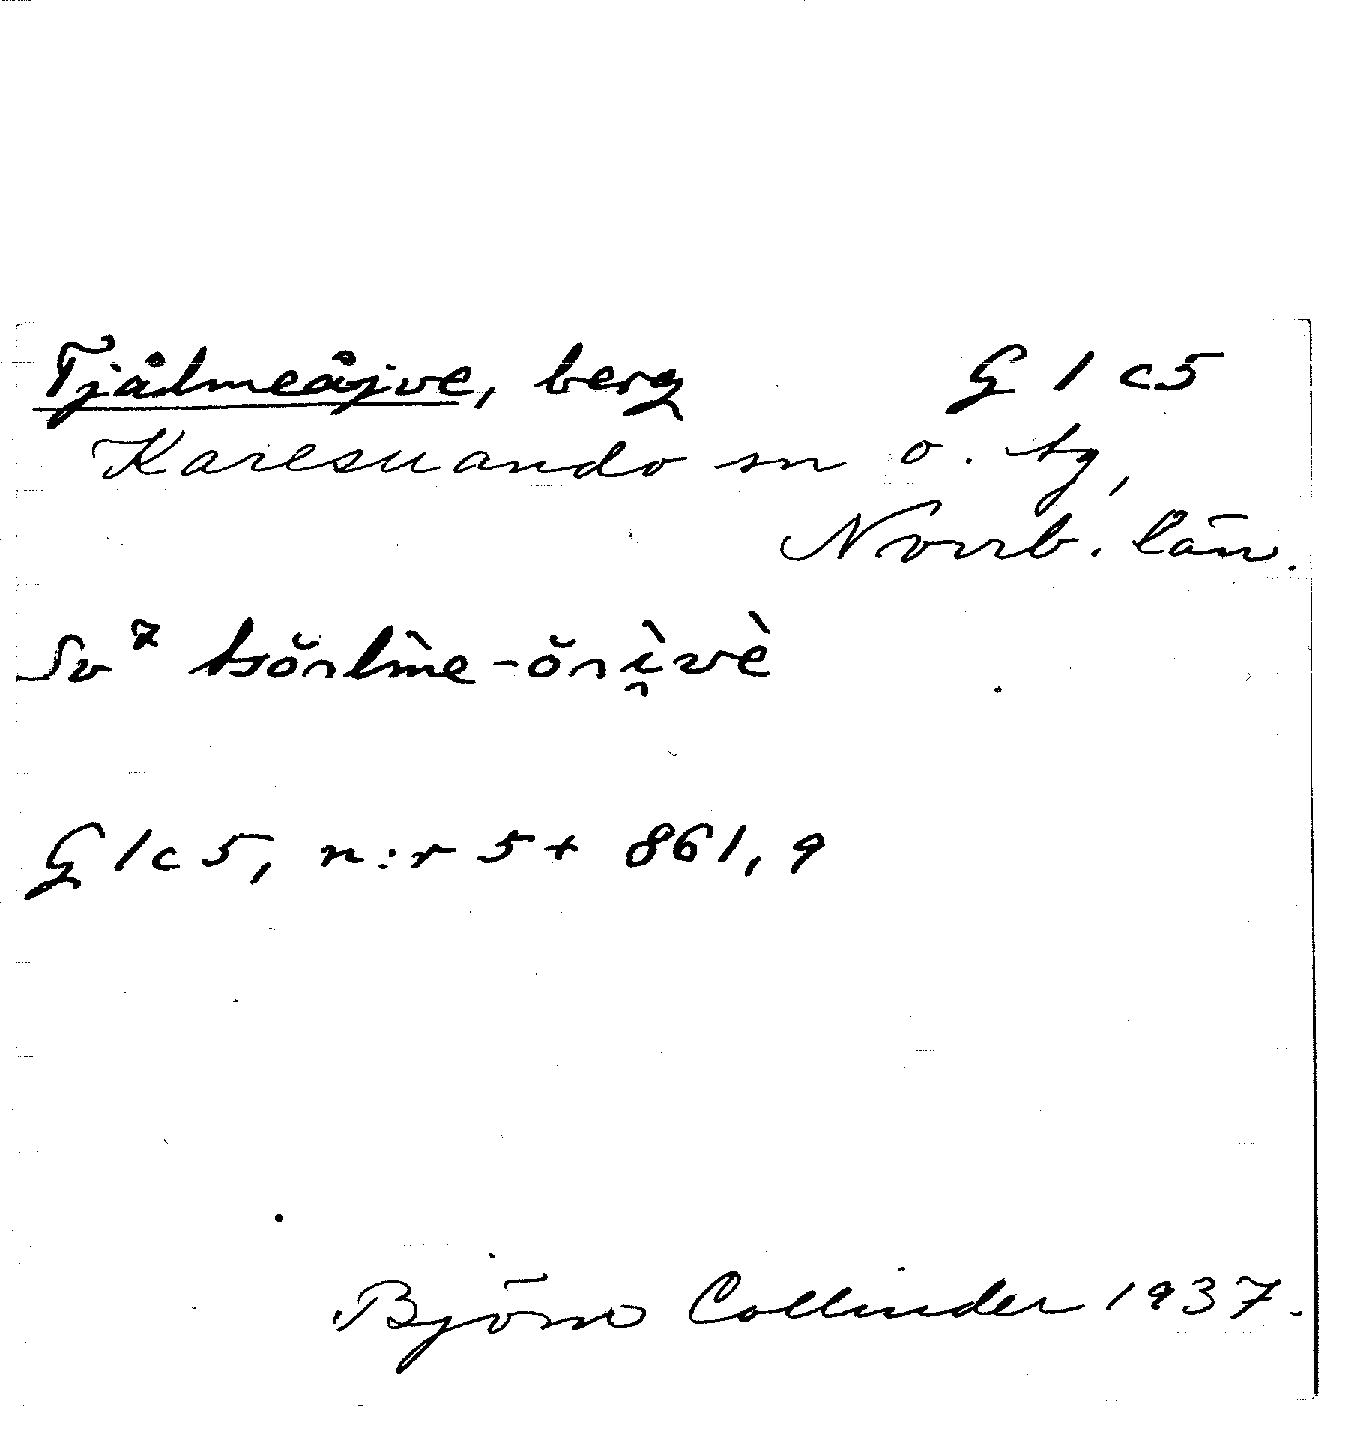 Tjålmeåjve, berg G 1 c5
Karesuando sn o. tg,
Norrb. län.
G 1 c 5, n:r 5 + 861, 9
Björn Collinder 1937.